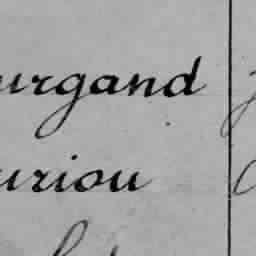 urgand
uriou